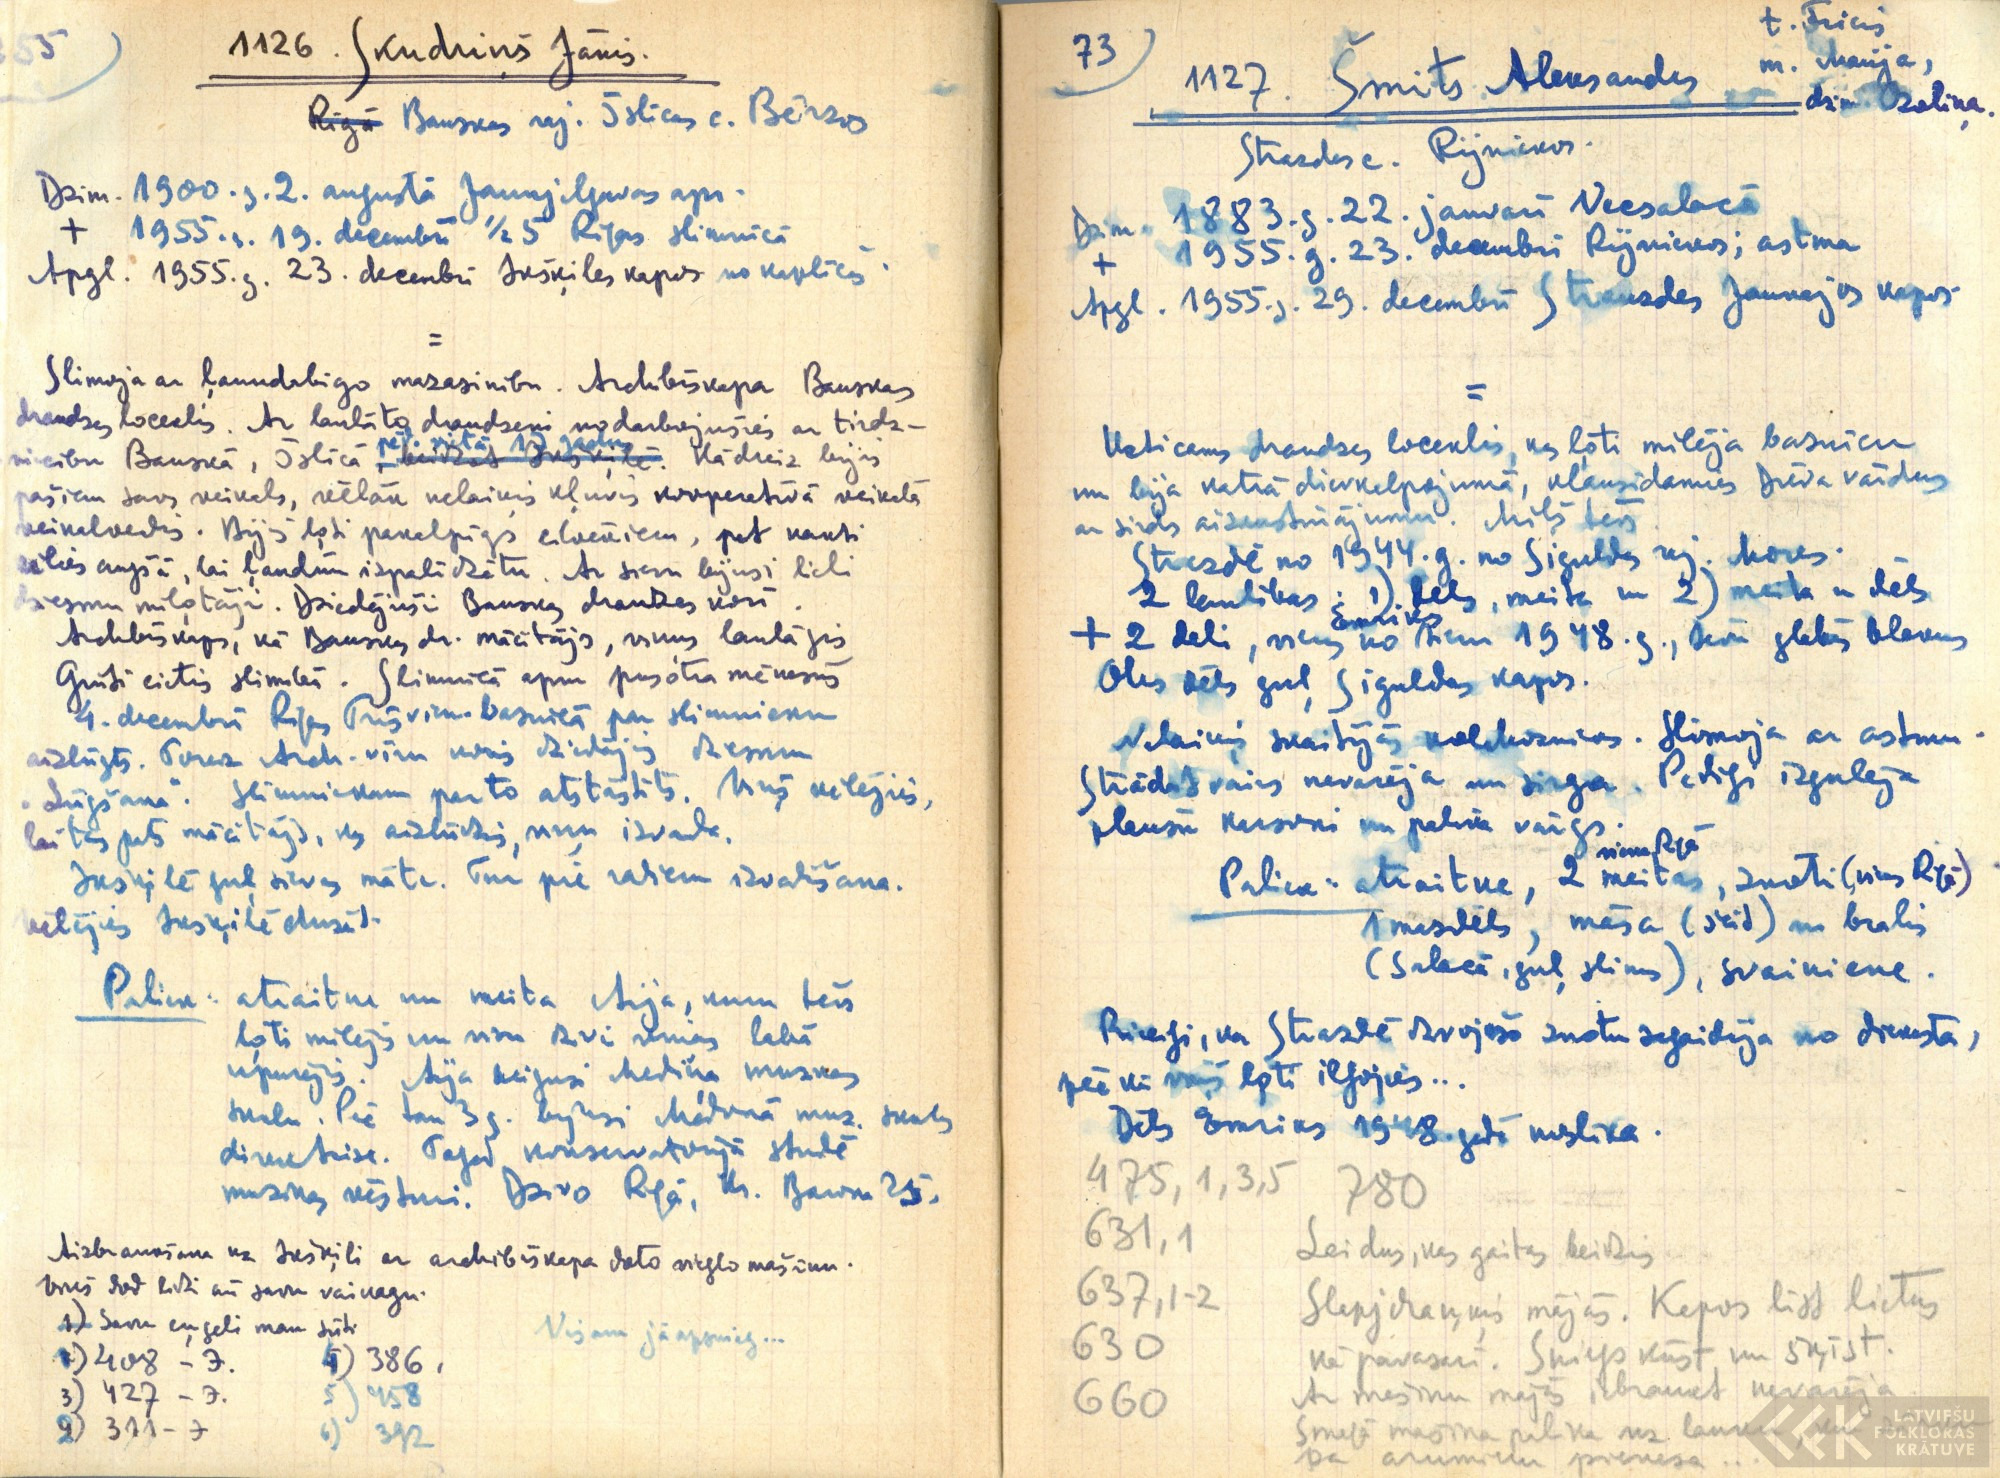 55)
1126. Skudriņš Jānis.
Rīgā Bauskas raj. Īslīcas c. Bērzos
Dzim. 1900.g. 2. augustā Jaunjelgavas apr.
+ 1955.g. 19. decembrī ½ 5 Rīgas slimnīcā
Apgl. 1955.g. 23. decembrī Ikšķiles kapos no kapličas.
=
Slimoja ar ļaundabīgo mazasinību. Archibīskapa Bauskas
draudzes loceklis. Ar laulāto draudzeni nodarbojušies ar tirdz-
niecību Bauskā, Īslīcā, pēc vietās 17 gadus
beidzot Ikšķilē. Kādreiz bijis
pašiem savs veikals, vēlāk nelaiķis kļuvis kooperatīvā veikalā
veikalvedis. Bijis ļoti pakalpīgs cilvēkiem, pat naktī
cēlies augšā, lai ļaudīm izpalīdzētu. Ar sievu bijuši lieli
dziesmu mīļotāji. Dziedājuši Bauskas draudzes korī.
Archibīskaps, kā Bauskas dr. mācītājs, viņus laulājis
Grūti cietis slimībā. Slimnīcā apm. pusotra mēnesis
4. decembrī Rīgas Trīsvien. baznīcā par slimnieku
aizlūgts. Toreiz Arch. vīru koris dziedājis dziesmu
"Lūgšana". Slimniekam par to atstāstīts. Viņš vēlējies,
lai tas pats mācītājs, kas aizlūdzis, viņu izvada.
Ikšķilē guļ sievas māte. Tur pie radiem izvadīšana.
Vēlējies Ikšķilē dusēt.
Paliek: atraitne un meita Aija, kuru tēvs
ļoti mīlējis un visu dzīvi viņas labā
upurējis. Aija beigusi Mediņa muzikas
skolu. Pēc tam 3 g. bijusi Madonā muz. skolas
direktrise. Tagad konservatorijā studē
muzikas vēsturi. Dzīvo Rīgā, Kr. Barona 25.
Aizbraukšana uz Ikšķili ar archibīskapa doto vieglo mašīnu.
Viņš dod līdzi arī savu vainagu.
1) Savu eņģeli man sūti
1) 408 – 7. 4) 386.
3) 427 – 7. 5) 458
2) 311 – 7 6) 392
Visam jāapsnieg...
73)
t. Fricis
m. Marija,
dzim. Ozoliņa.
1127. Šmits Aleksandrs
Strazdes c. Rijniekos.
Dzim. 1883.g. 22. janvarī Vecsalacā
+ 1955.g. 23. decembrī Rijniekos; astma
Apgl. 1955.g. 29. decembrī Strazdes Jaunajos kapos
=
Uzticams draudzes loceklis, kas ļoti mīlēja baznīcu
un bija katrā dievkalpojumā, klausīdamies Dieva vārdus
ar sirds aizkustinājumu. Mīļš tēvs
Strazdē no 1944.g. no Siguldas raj. Mores.
2 laulības: 1) dēls, meita un 2) meita un dēls
Emriks
+ 2 dēli, viens no tiem 1948.g., tēvs glabās blakus
Otrs dēls guļ Siguldas kapos.
Nelaiķis skaitījās kolchoznieks. Slimoja ar astmu.
Strādāt vairs nevarēja un sirga. Pēdīgi izgulēja
plaušu karsoni un palika vārgs.
Paliek: atraitne, 2 meitas, viena Rīgā znoti (viens Rīgā)
1 mazdēls, māsa (šeit) un brālis
(Salacā, guļ slims), svainiene.
Priecīgi, ka Strazdē dzīvojošo znotu sagaidīja no dienesta,
pēc kā viņš ļoti ilgojies...
Dēls Emriks 1948. gadā noslīka.
475, 1, 3, 5 780
631, 1
637, 1-2
630
660
Leidus, kas gaitas beidzis
Slapjdraņķis mājās. Kapos līst lietus
kā pavasarī. Sniegs kūst un šķīst.
Ar mašīnu mājās iebraukt nevarēja.
Smagā mašīna palika uz lauku
pa arumiem pienesa ...
LATVIEŠU
FOLKLORAS
KRĀTUVE